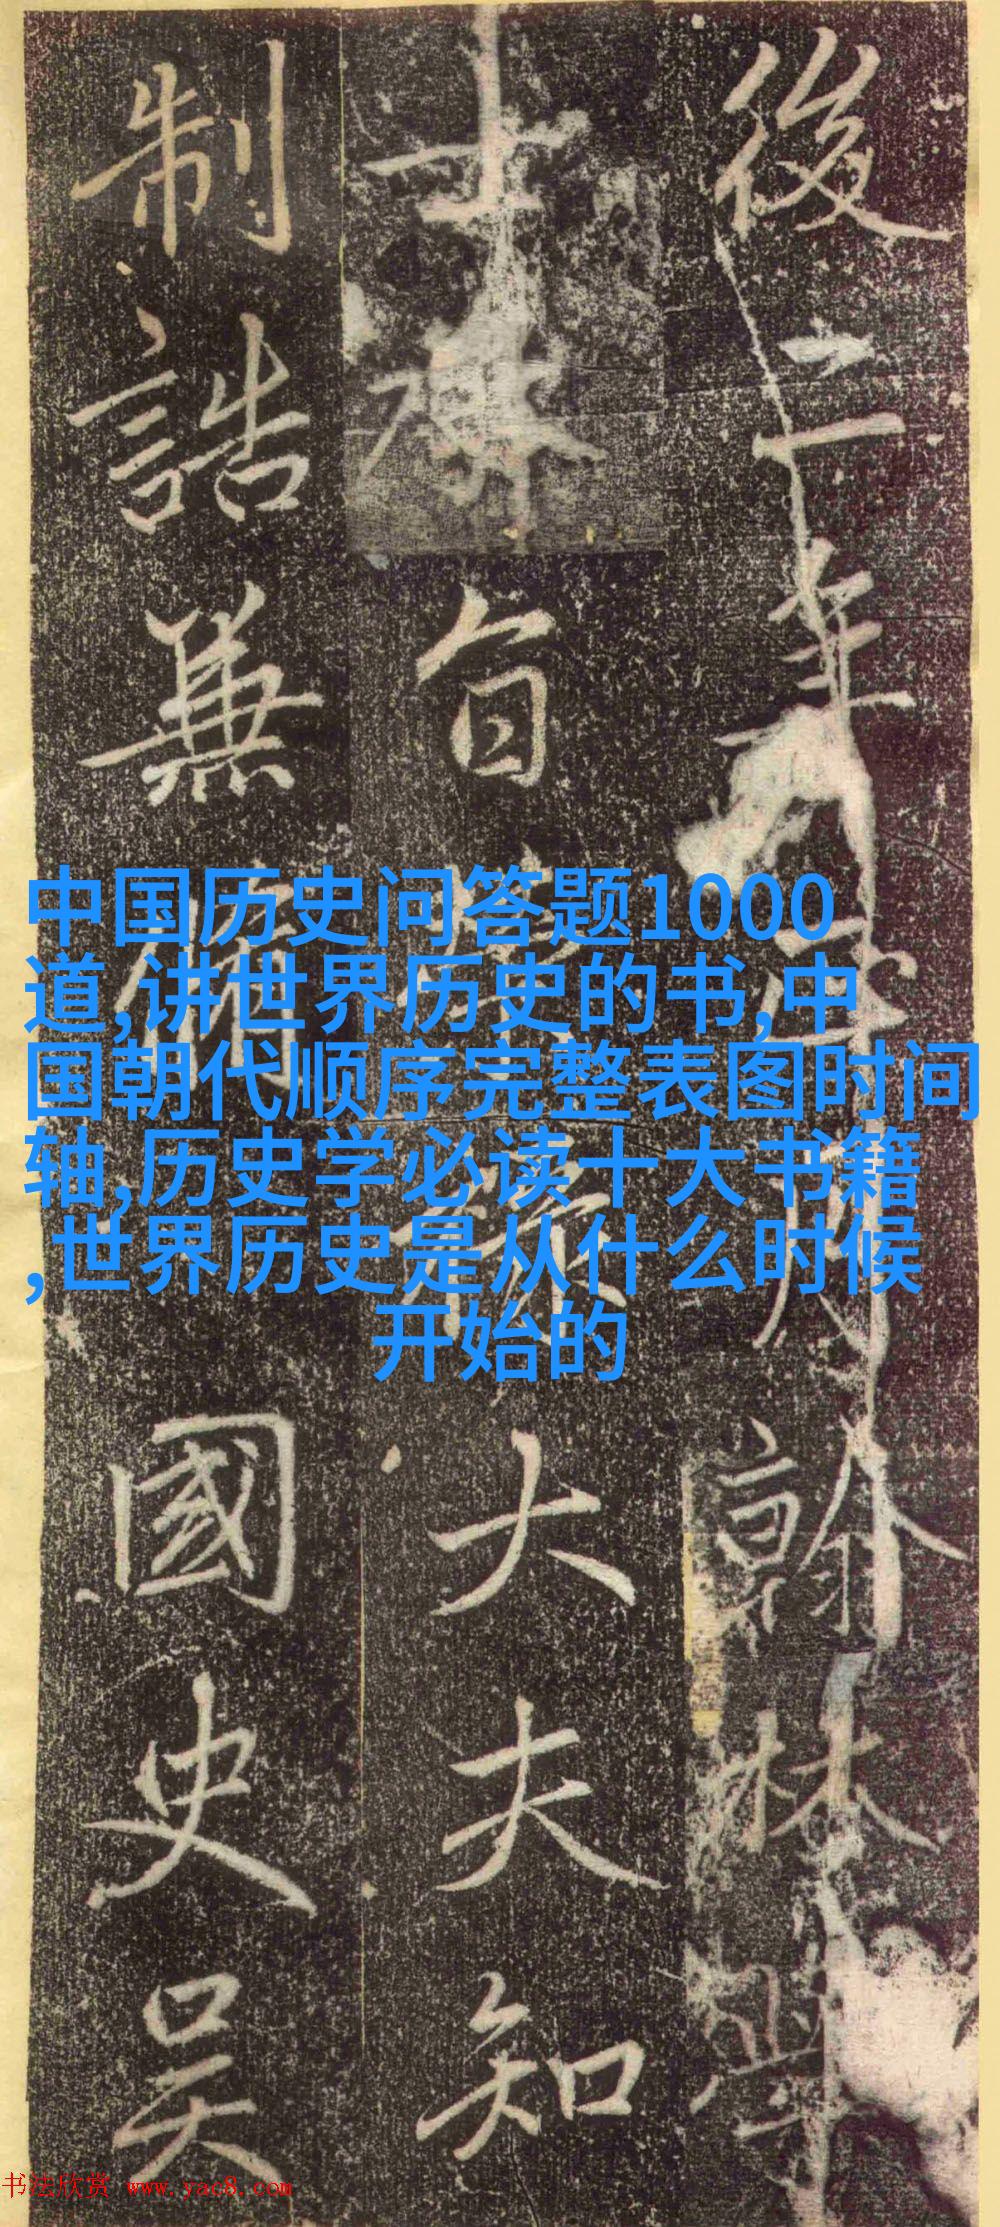 後二年月翰林學
士旨大夫知
制誥兼國史吴
中国历史问答题1000
道,讲世界历史的书,中
国朝代顺序完整表图时间
轴,历史学必读十大书籍
,世界历史是从什么时候
开始的
书法欣赏 www.yac8.com